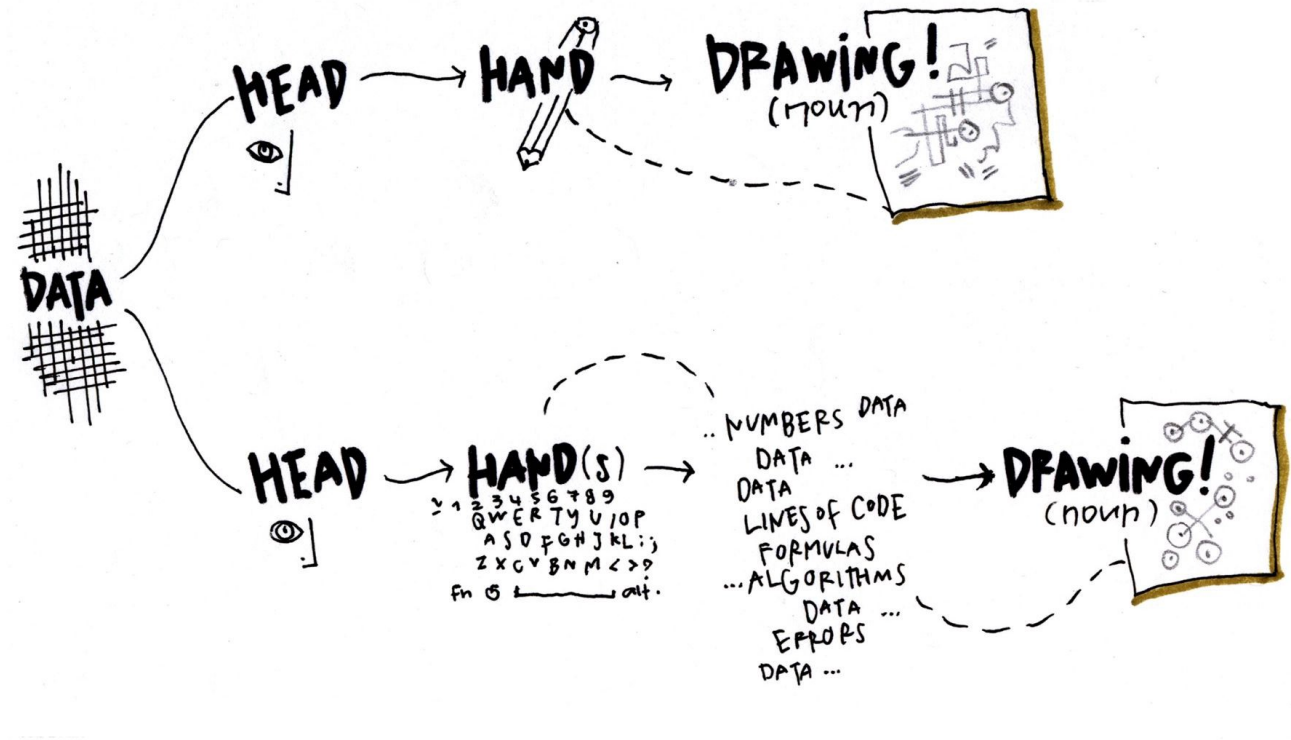 DATA
HEAD
HAND
DRAWING!
(noun)
HEAD
HAND(s)
~ 1 2 3 4 5 6 7 8 9
Q W E R T Y U I O P
A S D F G H J K L : ;
Z X C V B N M < > ?
fn alt.
.. NUMBERS DATA
DATA ...
DATA
LINES OF CODE
FORMULAS
...ALGORITHMS
DATA ...
ERRORS
DATA ...
DRAWING!
(noun)